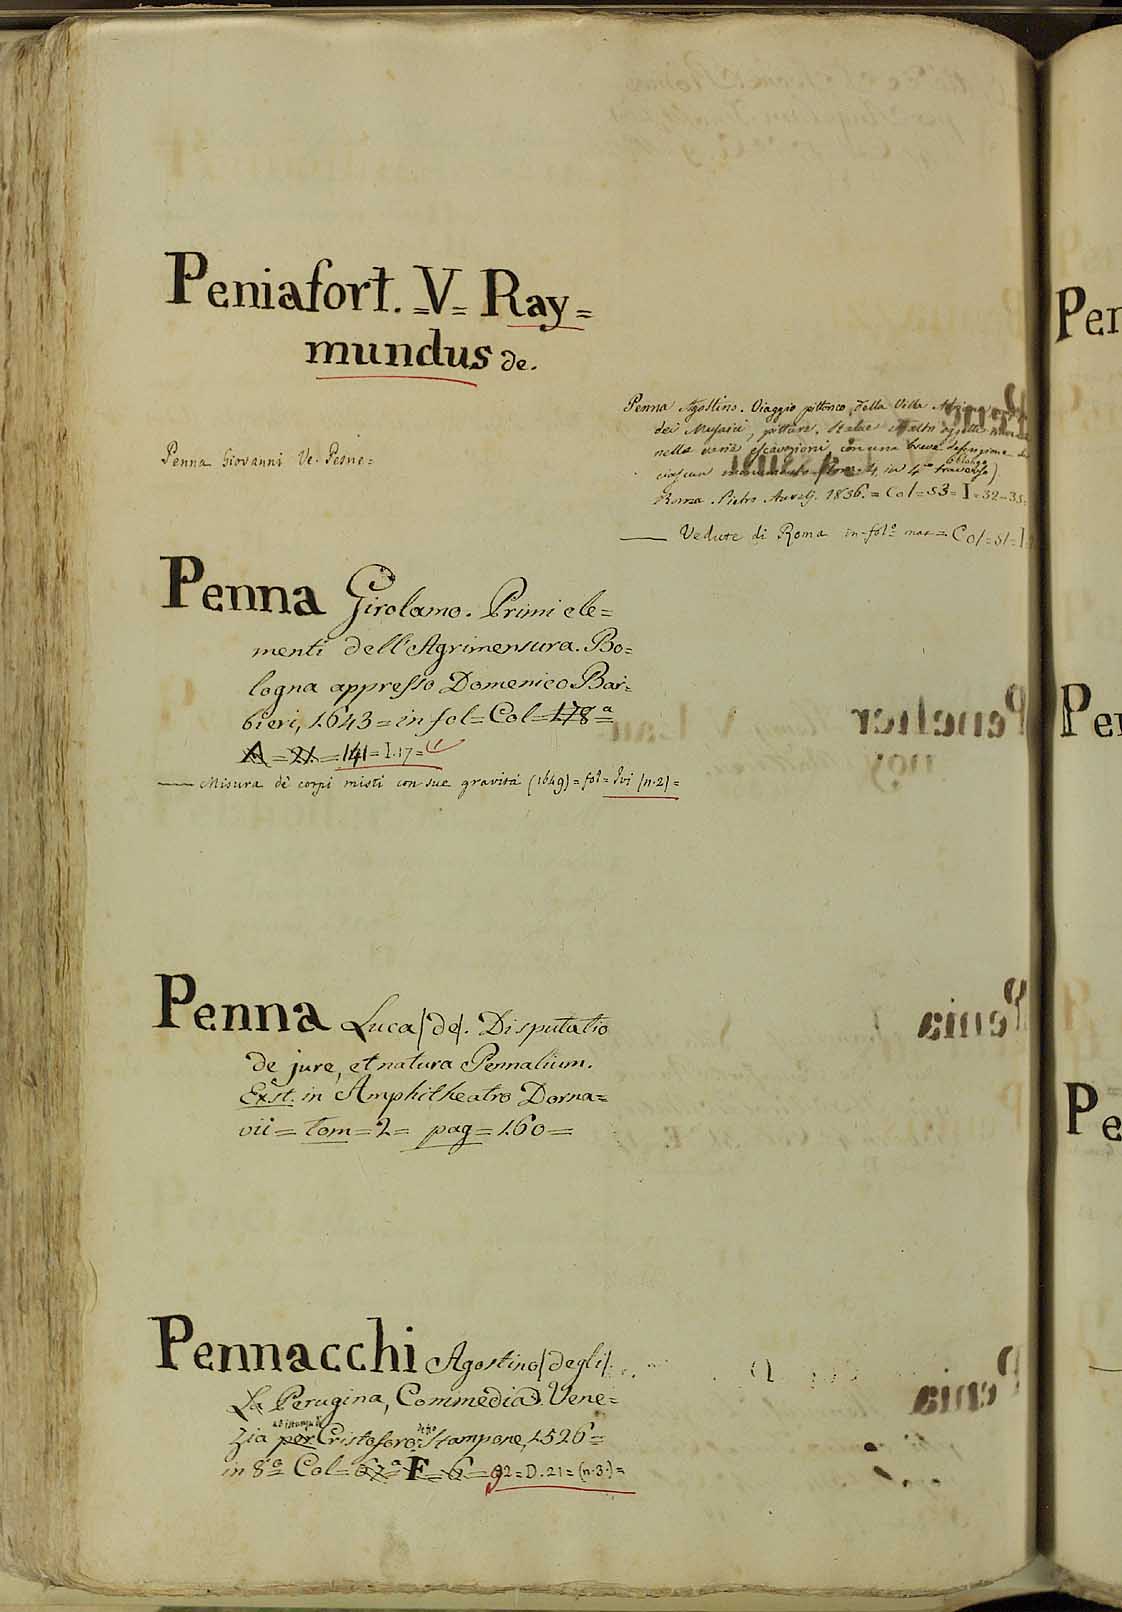 Peniafort. =V= Ray=
mundus de.
Penna Giovanni Ve. Pesne=
Penna Agostino. Viaggio pittorico della Villa
dei Musaici, pitture, statue ed altri oggetti
nelle varie escavazioni, con una breve descrizione
ciascun monumento tom. 4. in 4to oblongo
Roma. Pietro Aurelj. 1836. = Col = 53 = I = 32-35
— Vedute di Roma in-folo = Col = 51 = I
Penna Girolamo. Primi ele=
menti dell'Agrimensura. Bo=
logna appresso Domenico Bar=
bieri, 1643 = in fol = Col = 178a
A = 21. = 141 = I. 17 =
— Misura dè corpi misti con sue gravità (1649) = fol = Ivi (n. 2) =
Penna Luca (de). Disputatio
de jure, et natura Pennalium.
Exst. in Amphitheatro Dorna=
vii = tom = 2 = pag = 160 =
Pennacchi Agostino (degli).
La Perugina, Commedia. Vene=
zia ad istanza di per Cristoforo detto Stampone, 1526 =
in 8o Col = 67a F = 6 = 92 = D. 21 = (n. 3.) =
Pen
Pen
Pe